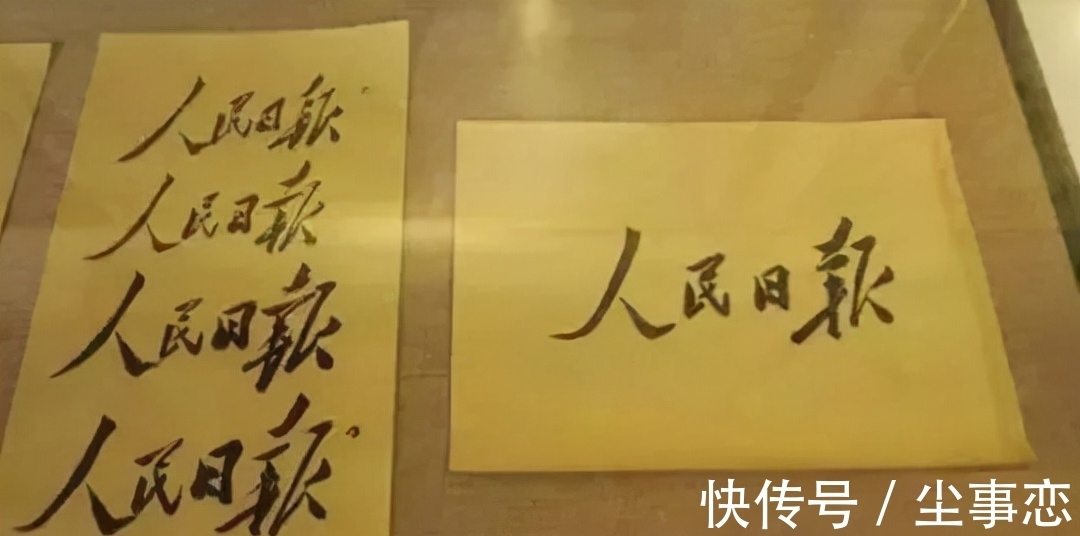 人民日報
人民日報
人民日報
人民日報
人民日報
快传号 / 尘事恋